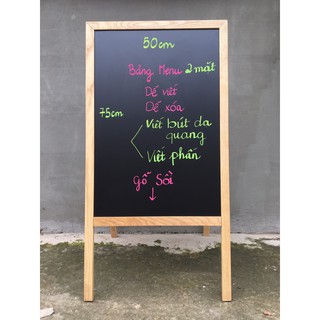 50cm
Bảng Menu 2 mặt
Dễ viết
Dễ xóa
75cm
Viết bút dạ quang
Viết phấn
gỗ Sồi